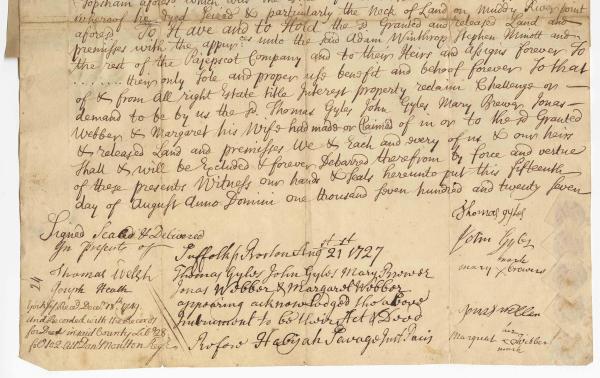 Topsham aforesd which was the
whereof he dyed Seized & particularly the Neck of Land on Muddy River point
aforesd To Have and to Hold the sd Granted and released Land and
premises with the appurces unto the said Adam Winthrop Stephen Minott and
the rest of the Pejepscot Company and to their Heirs and assigns forever To
their only sole and proper use benefit and behoof forever To that
of & from All right Estate title Interest property reclaim Challenge or
demand to be by us the sd Thomas Gyles John Gyles Mary Brewer Jonas
Webber & Margaret his Wife had made or Claimed of in or to the sd Granted
& released Land and premises We & Each and every of us & our heirs
Shall & will be Excluded & forever Debarred therefrom by force and vertue
of these presents Witness our hands & Seals hereunto put this fifteenth
day of August Anno Domini one thousand seven hundred and twenty seven
Thomas Gyles
Signed Sealed & Delivered
In presents of
Suffolk ss Boston Augst 21st 1727
John Gyles
Thomas Welsh
Thomas Gyles John Gyles Mary Brower
mark
mary x
Joseph Heath
Jonas Webber & Margaret Webber
24
appearing acknowledged the above
and Recorded with the Records
Instrument to be their Act & Deed
for Deeds in said County Lib 28
Margrat x Webber
mark
fol 102 Att Dan Moulton Regr
Before Habijah Savage Just Pacis